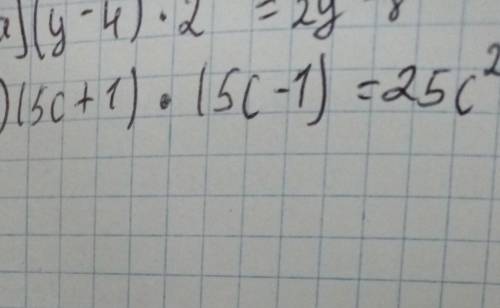 а)(y-4)·2 = 2y 8
)(5c+1)·(5c-1)=25c²